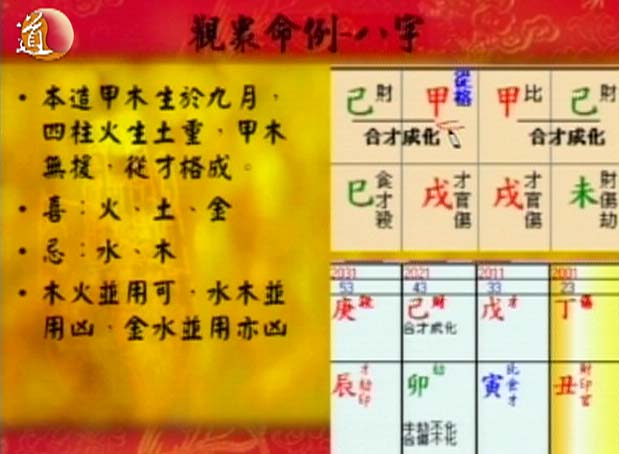 道
觀眾命例-八字
• 本造甲木生於九月，
四柱火生土重，甲木
無援，從才格成。
• 喜：火、土、金
• 忌：水、木
• 木火並用可，水木並
用凶，金水並用亦凶
己財 甲從格 甲比 己財
合才成化 合才成化
巳食才殺 戌才官傷 戌才官傷 未財傷劫
2031 2021 2011 2001
53 43 33 23
庚殺 己財 戊才 丁傷
合才成化
辰才劫印 卯劫 寅比食才 丑財印官
半劫不化
合傷不化